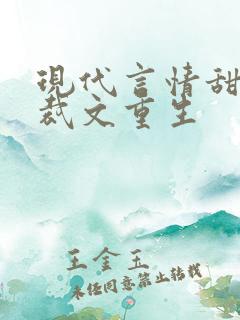 现代言情甜
裁文重生
王金玉
未经同意禁止转载